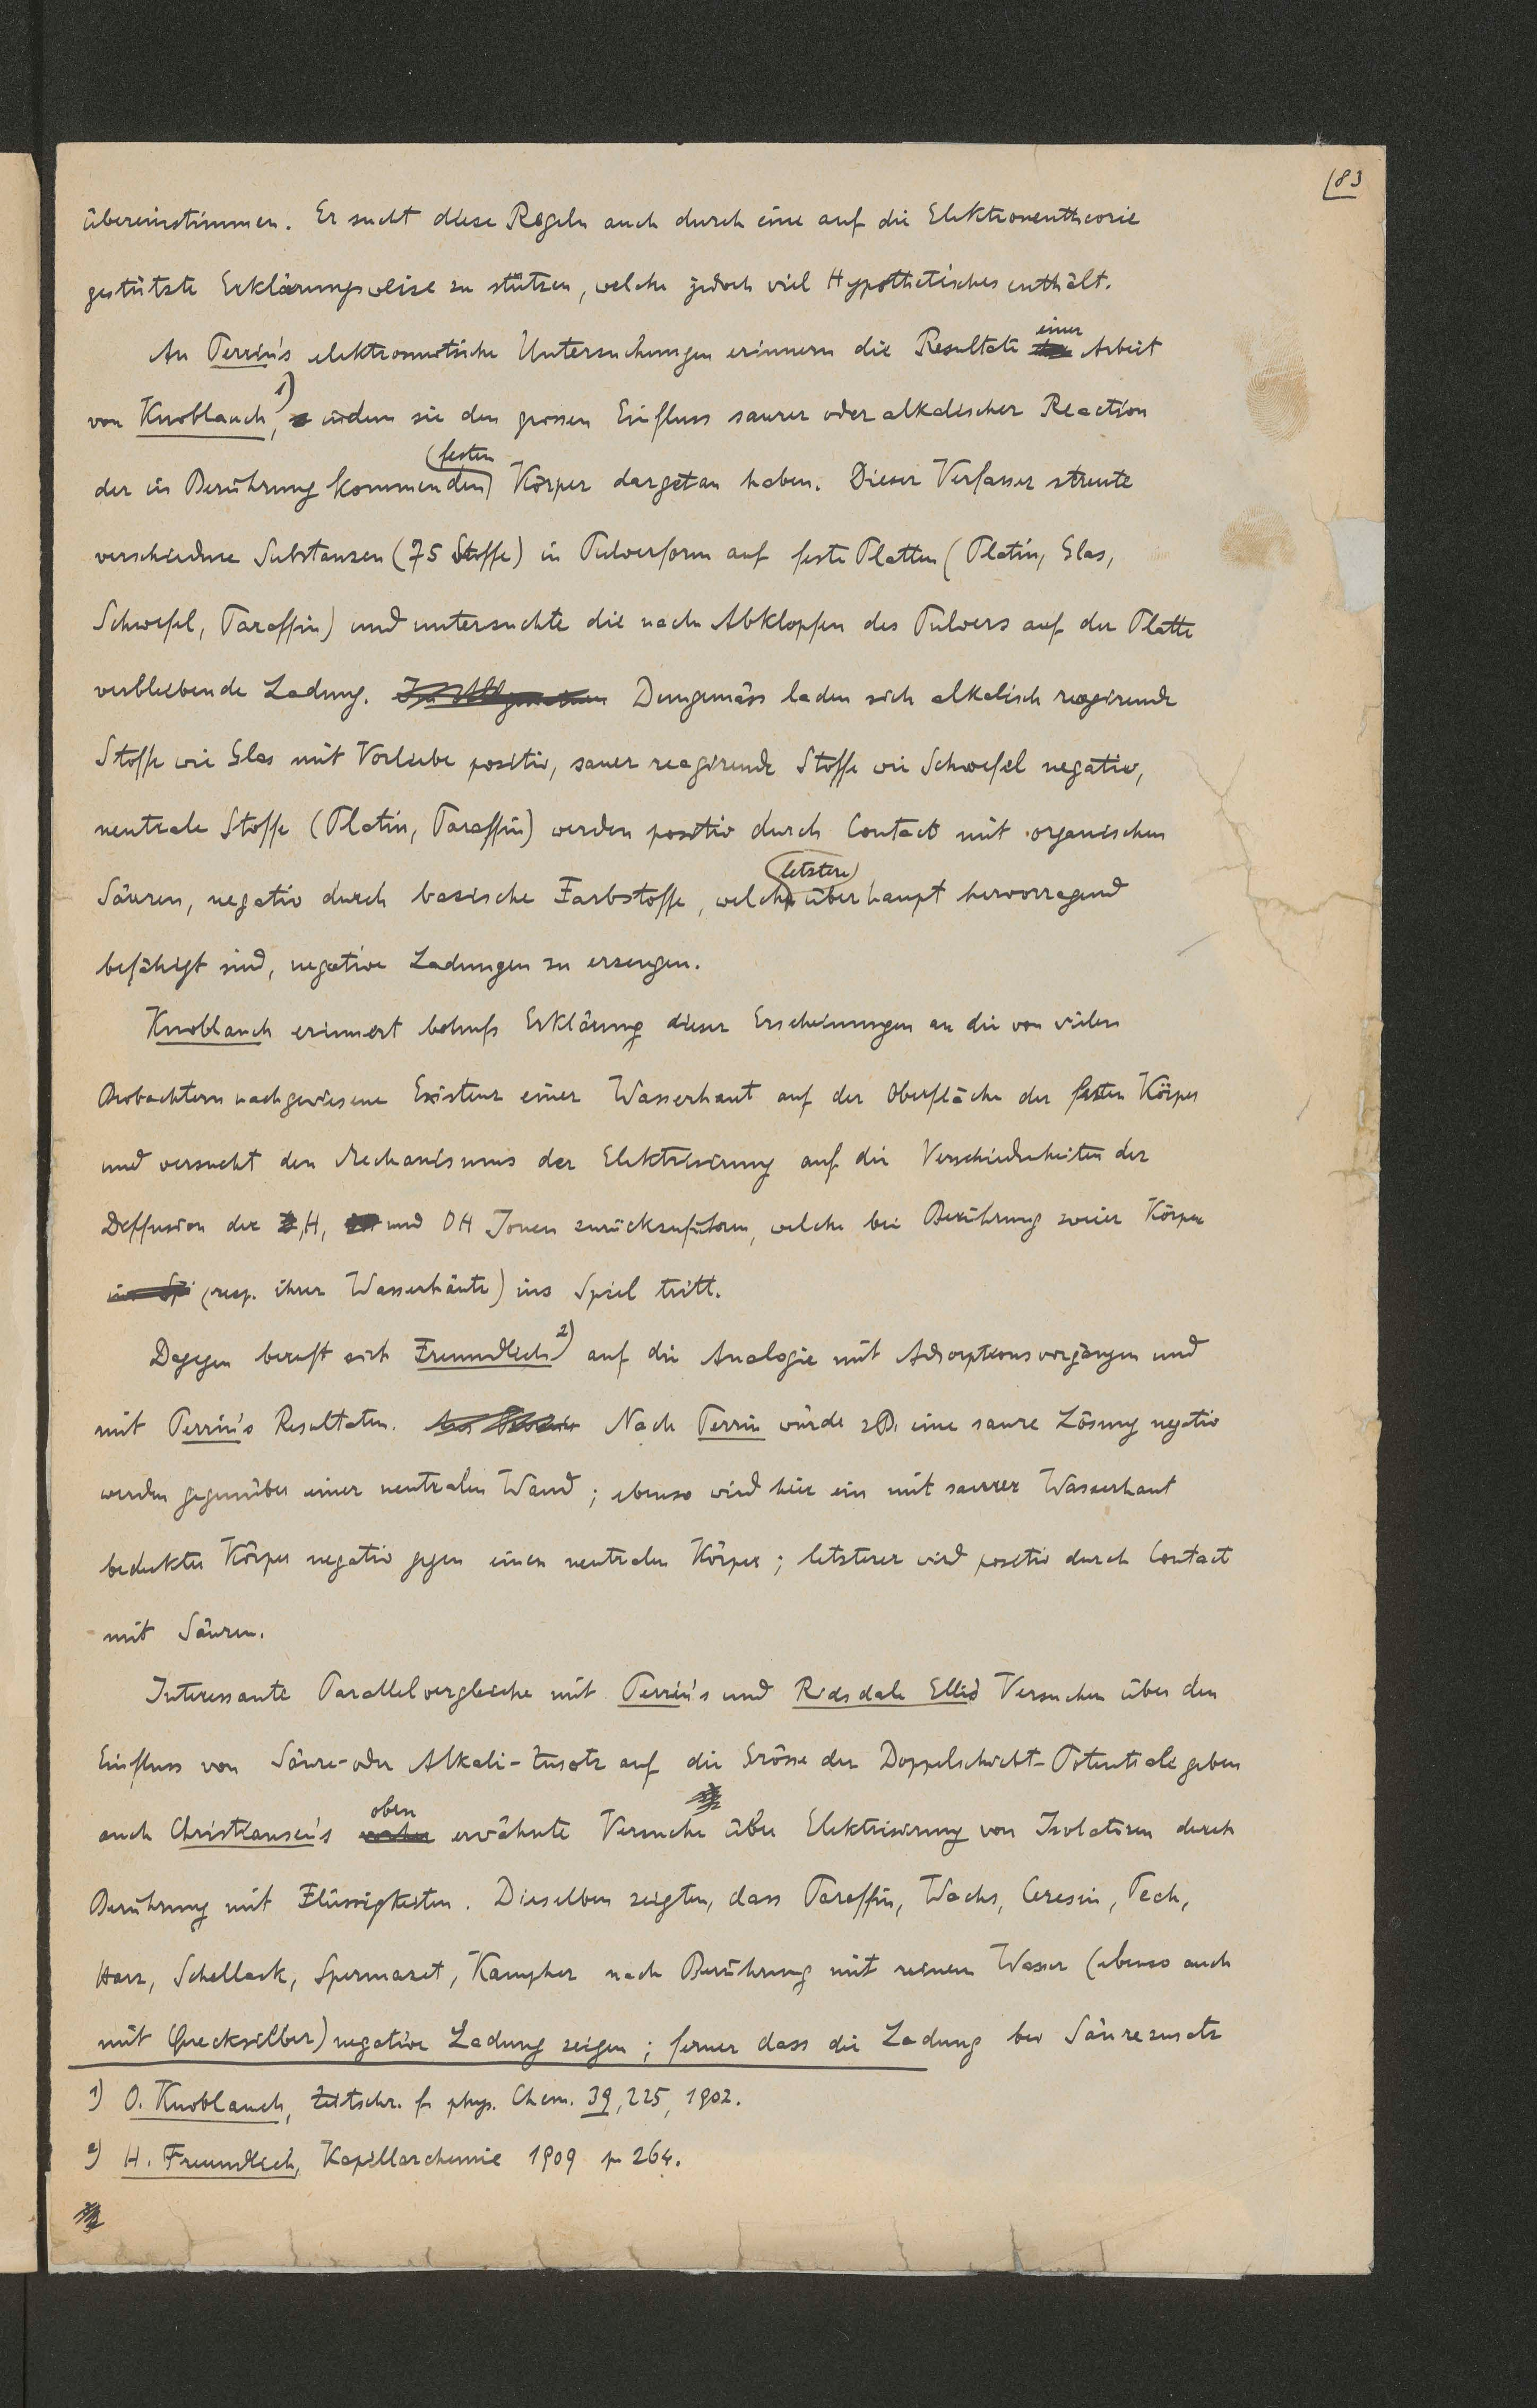 83
übereinstimmen. Er sucht diese Regeln auch durch eine auf die Elektronentheorie
gestützte Erklärungsweise zu stützen, welche jedoch viel Hypothetisches enthält.
An Perrin's elektroosmotische Untersuchungen erinnern die Resultate einer Arbeit
von Knoblauch,¹) indem sie den grossen Einfluss saurer oder alkalischer Reaction
der in Berührung kommenden festen Körper dargetan haben. Dieser Verfasser streute
verschiedene Substanzen (75 Stoffe) in Pulverform auf feste Platten (Platin, Glas,
Schwefel, Paraffin) und untersuchte die nach Abklopfen des Pulvers auf der Platte
verbliebende Ladung. Demgemäss laden sich alkalisch reagirende
Stoffe wie Glas mit Vorliebe positiv, sauer reagirende Stoffe wie Schwefel negativ,
neutrale Stoffe (Platin, Paraffin) werden positiv durch Contact mit organischen
Säuren, negativ durch basische Farbstoffe, welch letztere überhaupt hervorragend
befähigt sind, negative Ladungen zu erzeugen.
Knoblauch erinnert behufs Erklärung dieser Erscheinungen an die von vielen
Beobachtern nachgewiesene Existenz einer Wasserhaut auf der Oberfläche der festen Körper
und versucht den Mechanismus der Elektrisirung auf die Verschiedenheiten der
Diffusion der H, und OH Ionen zurückzuführen, welche bei Berührung zweier Körper
(resp. ihrer Wasserhäute) ins Spiel tritt.
Dagegen beruft sich Freundlich²) auf die Analogie mit Adsorptionsvorgängen und
mit Perrin's Resultaten. Nach Perrin würde zB. eine saure Lösung negativ
werden gegenüber einer neutralen Wand; ebenso wird hier ein mit saurer Wasserhaut
bedeckter Körper negativ gegen einen neutralen Körper; letzterer wird positiv durch Contact
mit Säuren.
Interessante Parallelvergleiche mit Perrin's und Ridsdale Ellis Versuchen über den
Einfluss von Säure- oder Alkali-Zusatz auf die Grösse der Doppelschicht-Potentiale geben
auch Christiansen's oben erwähnte Versuche über Elektrisirung von Isolatoren durch
Berührung mit Flüssigkeiten. Dieselben zeigten, dass Paraffin, Wachs, Ceresin, Pech,
Harz, Schellack, Spermazet, Kampher nach Berührung mit reinem Wasser (ebenso auch
mit Quecksilber) negative Ladung zeigen; ferner dass die Ladung bei Säurezusatz
1) O. Knoblauch, Zeitschr. f. phys. Chem. 39, 225, 1902.
2) H. Freundlich, Kapillarchemie 1909 p 264.